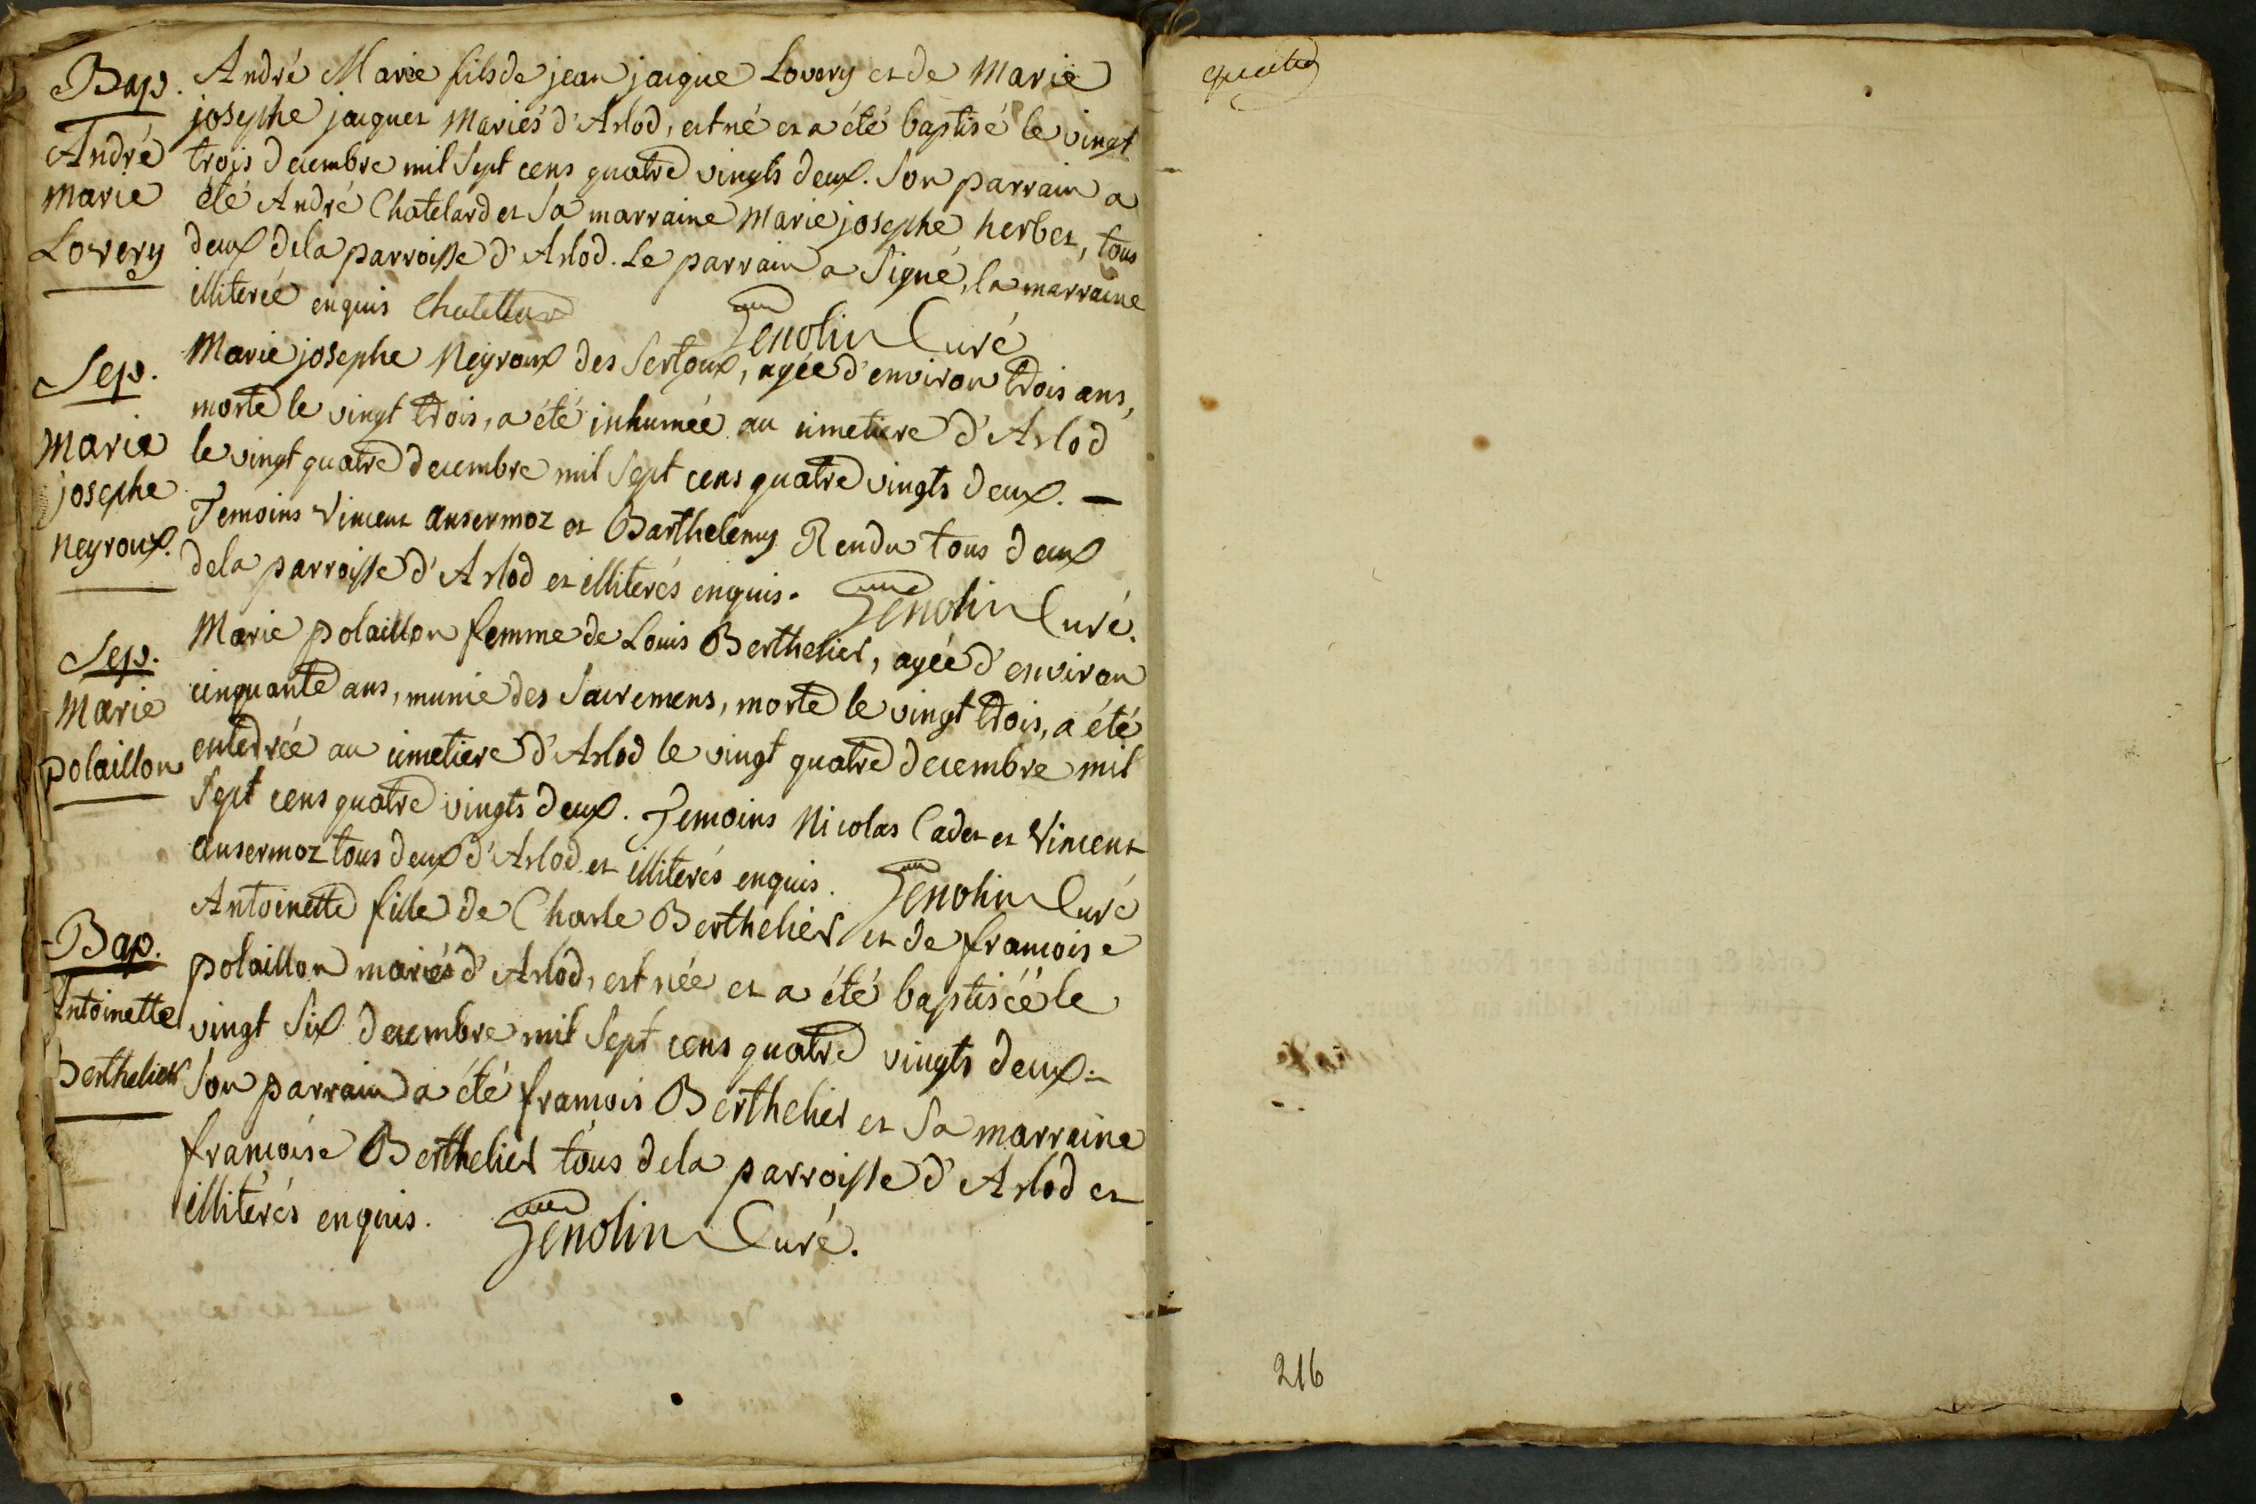 Bap.
André
Marie
Lovery
André Marie fils de jean jacque Lovery et de Marie
josephe jacquet Mariés d'Arlod, est né et a été baptisé le vingt
trois decembre mil Sept cens quatre vingts deux. Son parrain a
été André Chatelard et Sa marraine Marie josephe herbet, tous
deux dela parroisse d'Arlod. Le parrain a Signé, la marraine
illiterée enquis Chatellard
Genolin Curé
Sep.
Marie
josephe
Neyroux.
Marie josephe Neyroux des Sertoux, agée d'environ trois ans,
morte le vingt trois, a été inhumée au cimetiere d'Arlod
le vingt quatre decembre mil Sept cens quatre vingts deux. —
Temoins Vincent Ansermoz et Barthelemy Rendu tous deux
dela parroisse d'Arlod et illiterés enquis. Genolin Curé.
Sep.
Marie
polaillon
Marie polaillon femme de Louis Berthelier, agée d'environ
cinquante ans, munie des Sacremens, morte le vingt trois, a été
enterrée au cimetiere d'Arlod le vingt quatre decembre mil
Sept cens quatre vingts deux. Temoins Nicolas Cadet et Vincent
Ansermoz tous deux d'Arlod et illiterés enquis. Genolin Curé
Bap.
Antoinette
Berthelier
Antoinette fille de Charle Berthelier et de francoise
polaillon mariés d'Arlod, est née et a été baptisée le
vingt Six decembre mil Sept cens quatre vingts deux. —
Son parrain a été francois Berthelier et Sa marraine
francoise Berthelier tous dela parroisse d'Arlod et
illiterés enquis. Genolin Curé.
quatre
216